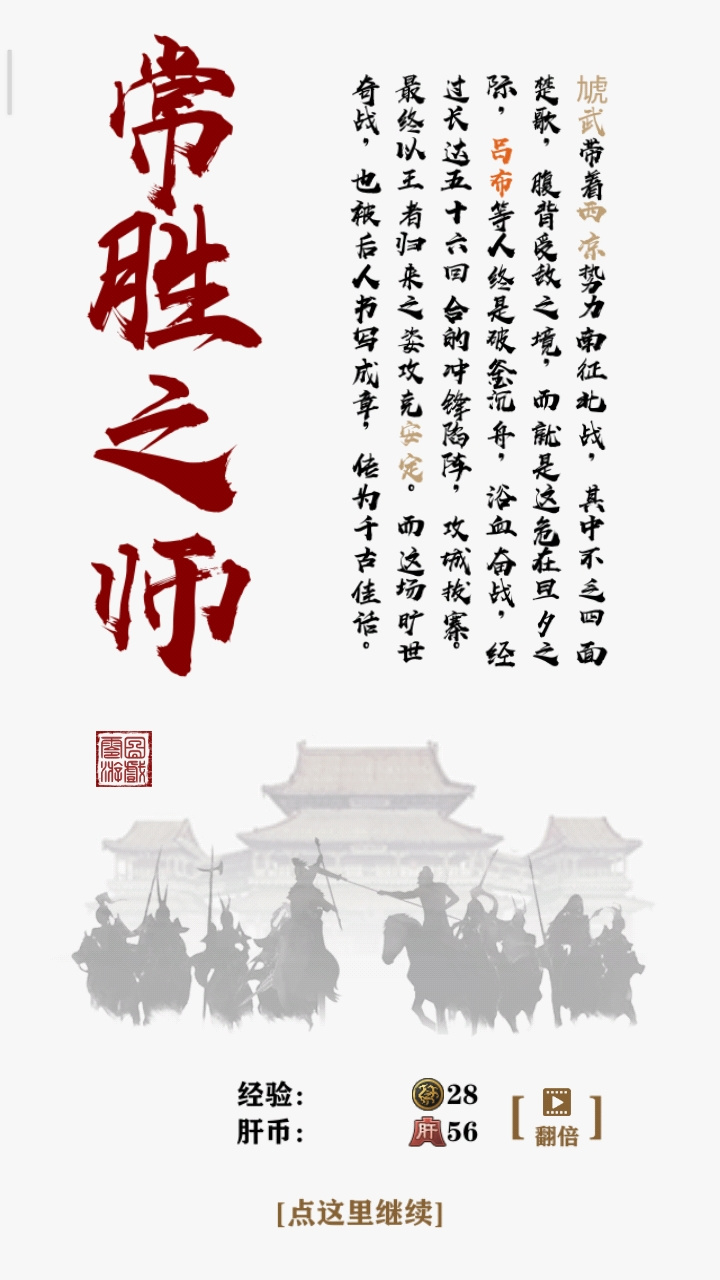 常胜之师
虓武带着西凉势力南征北战，其中不乏四面
楚歌，腹背受敌之境，而就是这危在旦夕之
际，吕布等人终是破釜沉舟，浴血奋战，经
过长达五十六回合的冲锋陷阵，攻城拔寨。
最终以王者归来之姿攻克安定。而这场旷世
奇战，也被后人书写成章，传为千古佳话。
经验：28
肝币：肝 56
[翻倍]
[点这里继续]